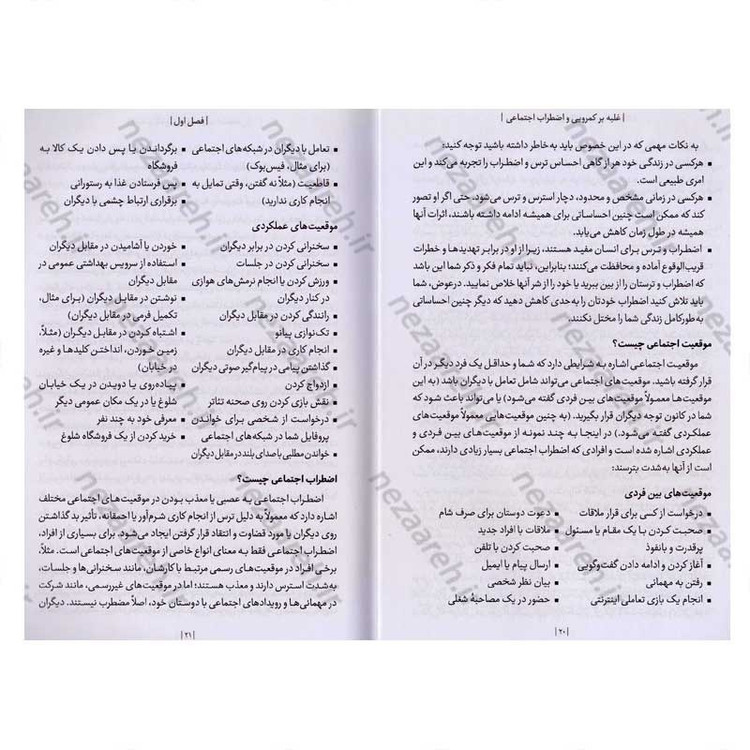 | غلبه بر کمرویی و اضطراب اجتماعی |
به نکات مهمی که در این خصوص باید به خاطر داشته باشید توجه کنید:
▪ هرکسی در زندگی خود هر از گاهی احساس ترس و اضطراب را تجربه می‌کند و این
امری طبیعی است.
▪ هرکسی در زمانی مشخص و محدود، دچار استرس و ترس می‌شود. حتی اگر او تصور
کند که ممکن است چنین احساساتی برای همیشه ادامه داشته باشند، اثرات آنها
همیشه در طول زمان کاهش می‌یابد.
▪ اضطراب و ترس برای انسان مفید هستند، زیرا از او در برابر تهدیدها و خطرات
قریب‌الوقوع آماده و محافظت می‌کنند؛ بنابراین، نباید تمام فکر و ذکر شما این باشد
که اضطراب و ترستان را از بین ببرید یا خود را از شر آنها خلاص نمایید. درعوض، شما
باید تلاش کنید اضطراب خودتان را به‌حدی کاهش دهید که دیگر چنین احساساتی
به‌طورکامل زندگی شما را مختل نکنند.
موقعیت اجتماعی چیست؟
موقعیت اجتماعی اشاره به شرایطی دارد که شما و حداقل یک فرد دیگر در آن
قرار گرفته باشید. موقعیت‌های اجتماعی می‌تواند شامل تعامل با دیگران باشد (به این
موقعیت‌ها معمولاً موقعیت‌های بین فردی گفته می‌شود) یا می‌تواند باعث شود که
شما در کانون توجه دیگران قرار بگیرید. (به چنین موقعیت‌هایی معمولاً موقعیت‌های
عملکردی گفته می‌شود.) در اینجا به چند نمونه از موقعیت‌های بین فردی و
عملکردی اشاره شده است و افرادی که اضطراب اجتماعی بسیار زیادی دارند، ممکن
است از آنها به‌شدت بترسند:
موقعیت‌های بین فردی
▪ درخواست از کسی برای قرار ملاقات
▪ صحبت کردن با یک مقام یا مسئول
پرقدرت و بانفوذ
▪ آغاز کردن و ادامه دادن گفت‌وگویی
▪ رفتن به مهمانی
▪ انجام یک بازی تعاملی اینترنتی
▪ دعوت دوستان برای صرف شام
▪ ملاقات با افراد جدید
▪ صحبت کردن با تلفن
▪ ارسال پیام یا ایمیل
▪ بیان نظر شخصی
▪ حضور در یک مصاحبهٔ شغلی
| ۲۰ |
| فصل اول |
▪ تعامل با دیگران در شبکه‌های اجتماعی
(برای مثال، فیس‌بوک)
▪ قاطعیت (مثلاً نه گفتن، وقتی تمایل به
انجام کاری ندارید)
▪ برگرداندن یا پس دادن یک کالا به
فروشگاه
▪ پس فرستادن غذا به رستورانی
▪ برقراری ارتباط چشمی با دیگران
موقعیت‌های عملکردی
▪ سخنرانی کردن در برابر دیگران
▪ سخنرانی کردن در جلسات
▪ ورزش کردن یا انجام نرمش‌های هوازی
در کنار دیگران
▪ رانندگی کردن در مقابل دیگران
▪ تک‌نوازی پیانو
▪ انجام کاری در مقابل دیگران
▪ گذاشتن پیامی در پیام‌گیر صوتی دیگران
▪ ازدواج کردن
▪ نقش بازی کردن روی صحنه تئاتر
▪ درخواست از شخصی برای خواندن
پروفایل شما در شبکه‌های اجتماعی
▪ خواندن مطلبی با صدای بلند در مقابل دیگران
▪ خوردن یا آشامیدن در مقابل دیگران
▪ استفاده از سرویس بهداشتی عمومی در
مقابل دیگران
▪ نوشتن در مقابل دیگران (برای مثال،
تکمیل فرمی در مقابل دیگران)
▪ اشتباه کردن در مقابل دیگران (مثلاً،
زمین خوردن، انداختن کلیدها و غیره
در خیابان)
▪ پیاده‌روی یا دویدن در یک خیابان
شلوغ یا در یک مکان عمومی دیگر
▪ معرفی خود به چند نفر
▪ خرید کردن از یک فروشگاه شلوغ
اضطراب اجتماعی چیست؟
اضطراب اجتماعی به عصبی یا معذب بودن در موقعیت‌های اجتماعی مختلف
اشاره دارد که معمولاً به دلیل ترس از انجام کاری شرم‌آور یا احمقانه، تأثیر بد گذاشتن
روی دیگران یا مورد قضاوت و انتقاد قرار گرفتن ایجاد می‌شود. برای بسیاری از افراد،
اضطراب اجتماعی فقط به معنای انواع خاصی از موقعیت‌های اجتماعی است. مثلاً،
برخی افراد در موقعیت‌های رسمی مرتبط با کارشان، مانند سخنرانی‌ها و جلسات،
به‌شدت استرس دارند و معذب هستند؛ اما در موقعیت‌های غیررسمی، مانند شرکت
در مهمانی‌ها و رویدادهای اجتماعی با دوستان خود، اصلاً مضطرب نیستند. دیگران
| ۲۱ |
nezaareh.ir